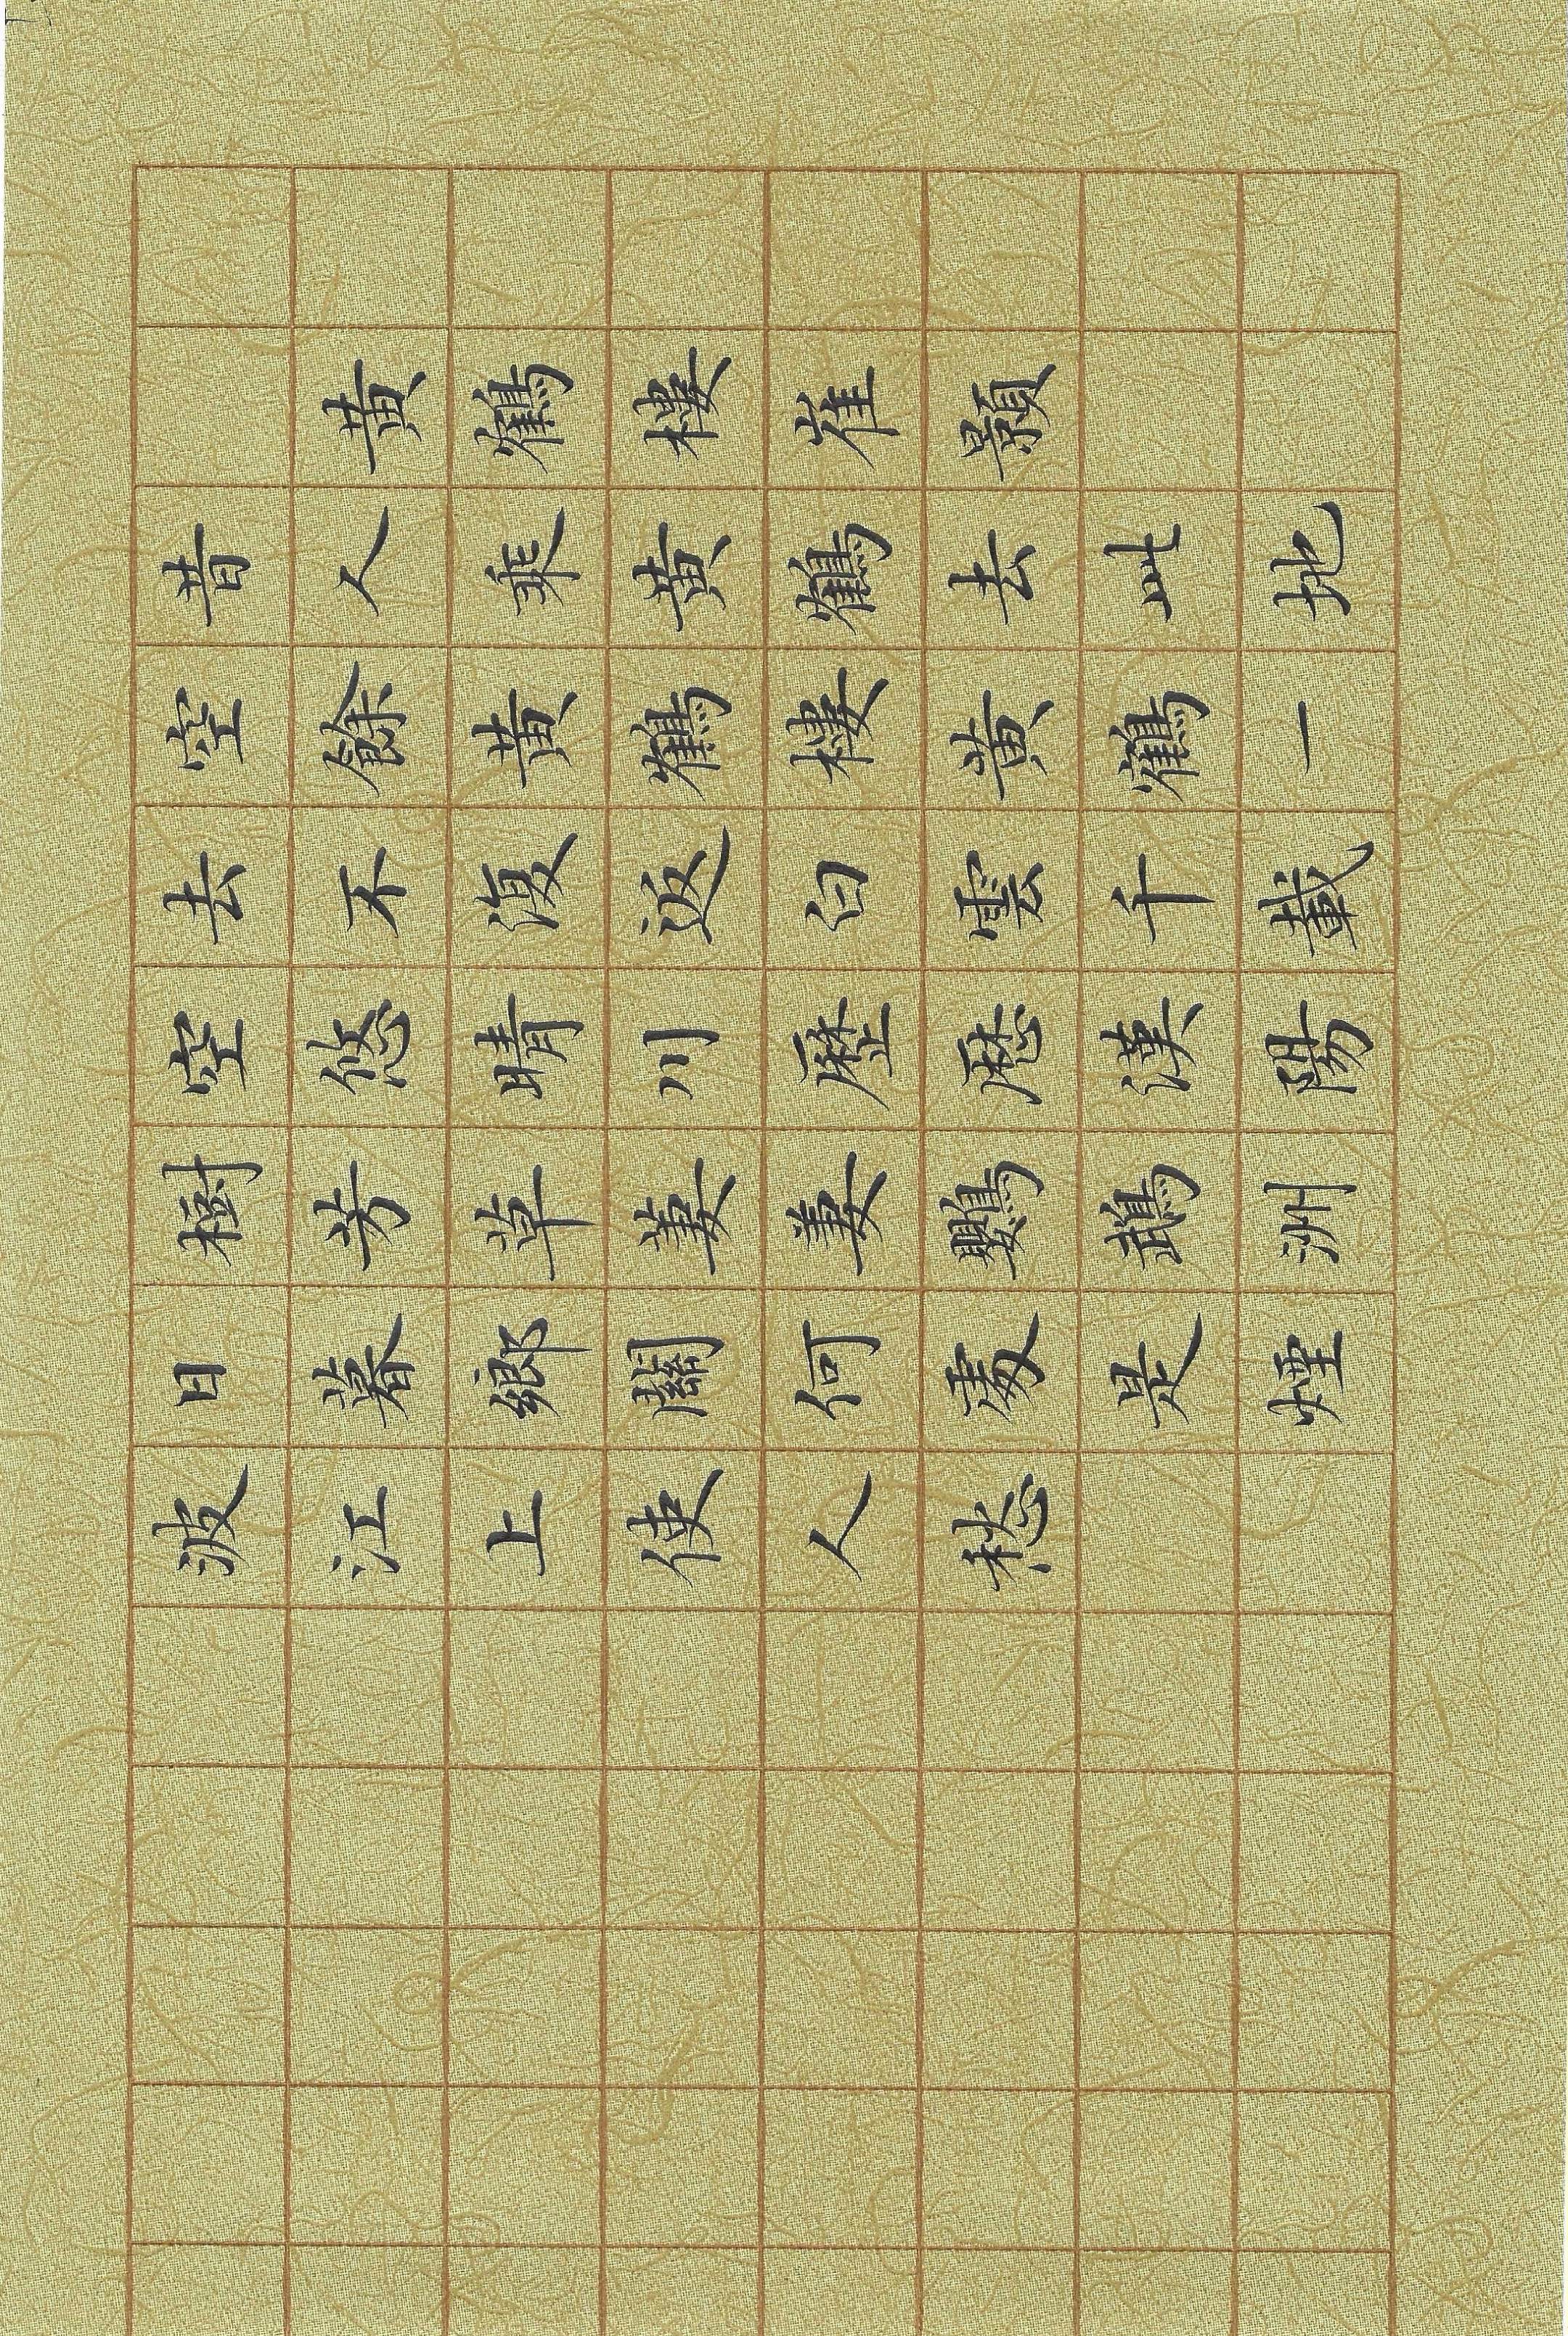 黃鶴樓崔顥
昔人乘黃鶴去此地
空餘黃鶴樓黃鶴一
去不復返白雲千載
空悠晴川歷歷漢陽
樹芳草萋萋鸚鵡洲
日暮鄉關何處是煙
波江上使人愁